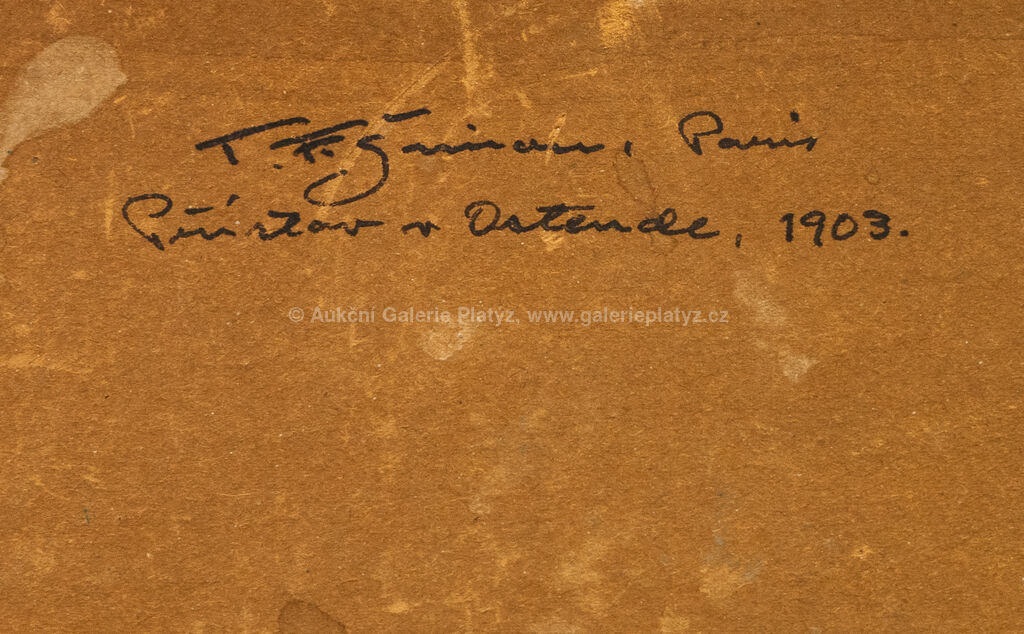 T. F. Šimon, Paris
Přístav v Ostende, 1903.
© Aukční Galerie Platýz, www.galerieplatyz.cz